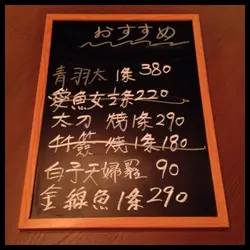 おすすめ
青羽太 1条 380
愛魚女 1条 220
太刀 燒1条290
竹簽 燒1条180
白子天婦羅 90
金線魚1条290